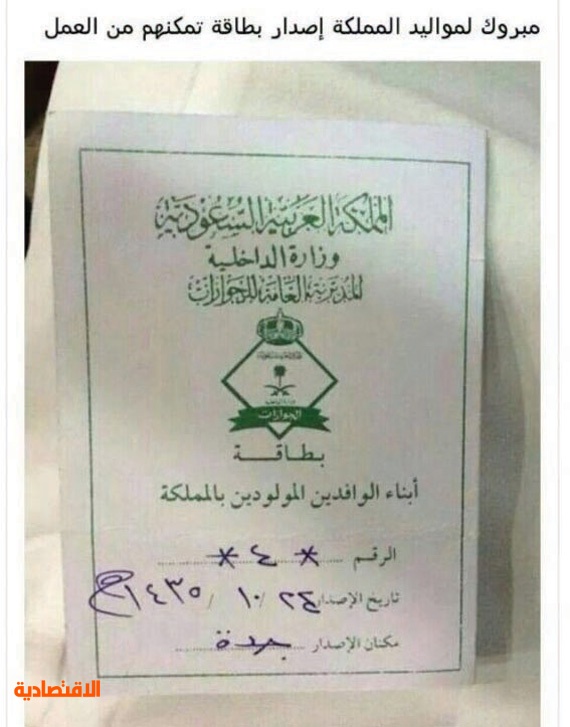 مبروك لمواليد المملكة إصدار بطاقة تمكنهم من العمل
المملكة العربية السعودية
وزارة الداخلية
المديرية العامة للجوازات
الجوازات
بطاقـــة
أبناء الوافدين المولودين بالمملكة
الرقم * ٤ *
تاريخ الإصدار ٢٤ / ١٠ / ١٤٣٥هـ
مكان الإصدار جدة
الاقتصادية